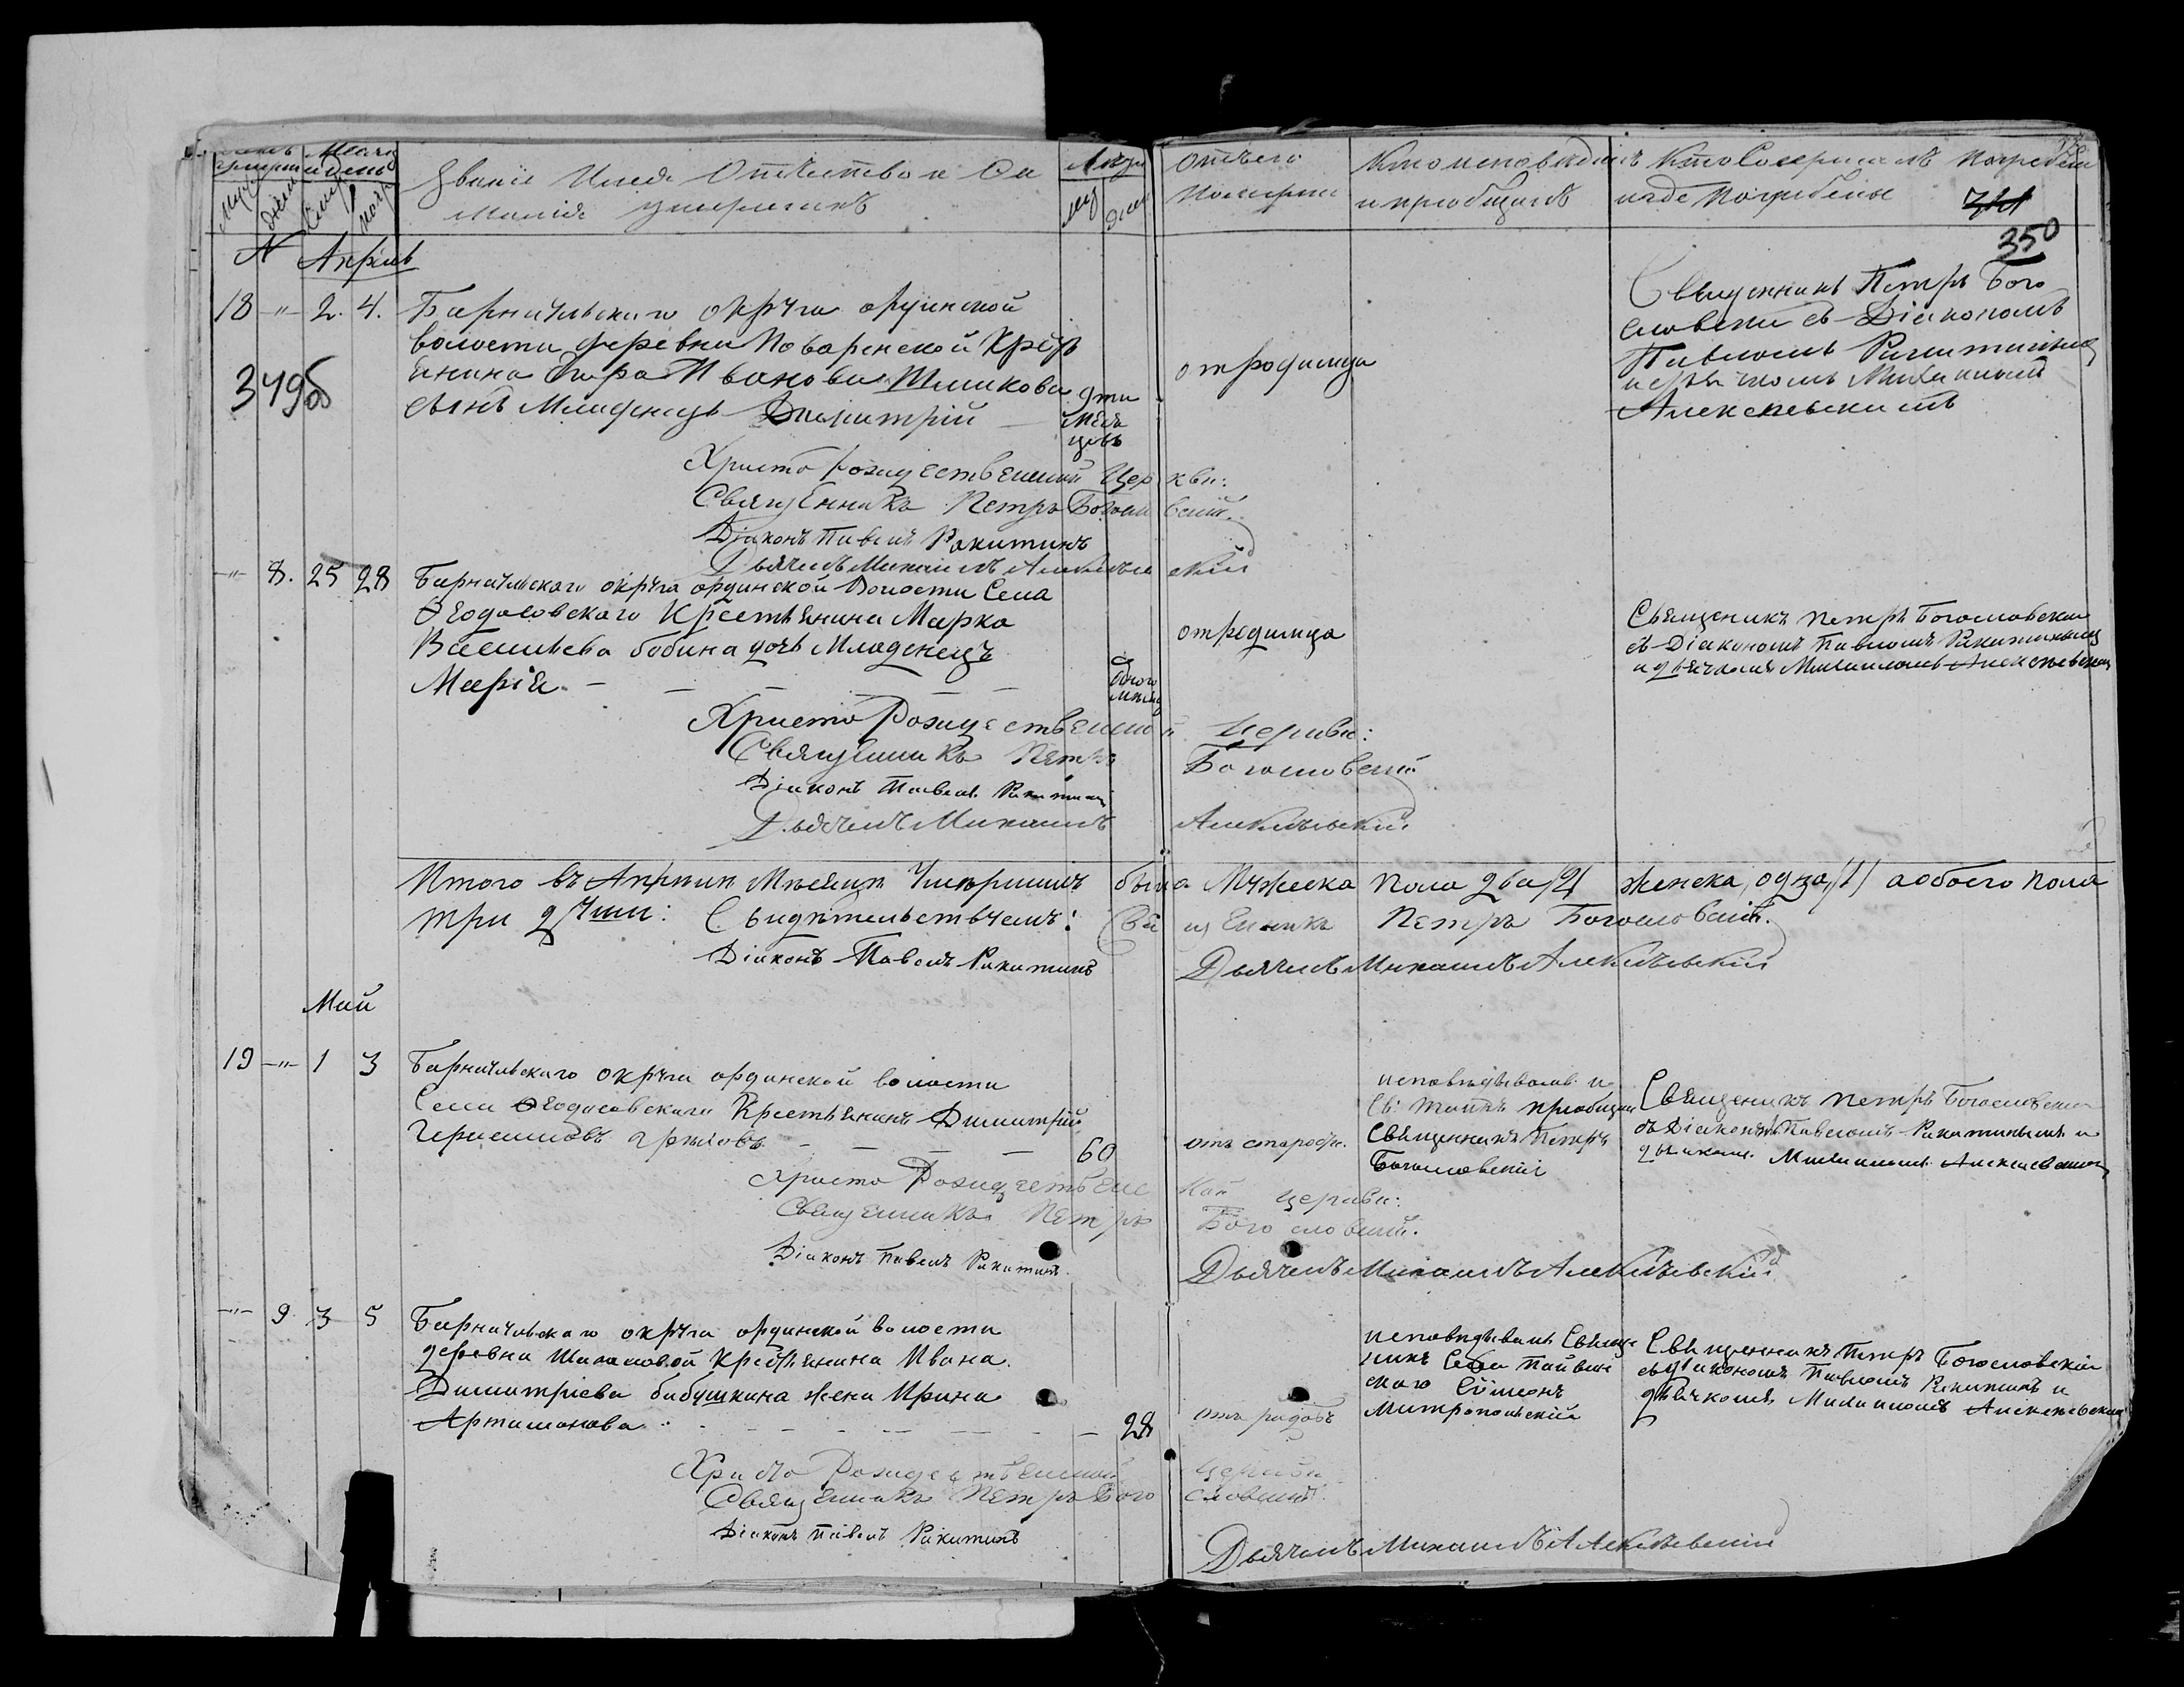 Звание Имя Отчество и Фа
милия умершихъ
Лѣта
Отъ чего
померъ
Кто исповѣдалъ
и приобщилъ
Кто Совершалъ погребен
и где Погребены
350
№ Апрѣль
18 -"- 2. 4. Барнаульскаго округа ордынской
волости деревни Поваренской Крестя
янина Ивановa Шмакова
сынъ Младенецъ Димитрій
9ти
меся
цовъ
отъ родимца
Священникъ Петръ Бого
словски съ Діакономъ
Павломъ Ракитинымъ
и дьячкомъ Михаиломъ
Алексеевскимъ
349об
Христо Рождественской Церкви:
Священникъ Петръ
Діаконъ Павелъ Ракитинъ
Дьячекъ Михаилъ
-"- 8. 25 28 Барнаульскаго округа ордынской Волости Села
Ѳеодосовскаго Крестьянина Марка
Васильева бобина дочь Младенецъ
Марія
одного
месяца
отъ родимца
Священикъ Петръ Богословски
съ Діакономъ Павломъ Ракитинымъ
и дьячкомъ Михаиломъ Алексеевскимъ
Христо Рождественной Церкви:
Священникъ Петръ Богословский
Діаконъ Павелъ Ракитинъ
Дьячекъ Михаилъ Алексѣевскій
Итого въ Апрѣли Мѣсяцѣ Умершихъ было Мужеска пола два /2/ женска одна /1/ а обоего пола
три души: Свидѣтельствуемъ: Священикъ Петръ Богословский.
Діаконъ Павелъ Ракитинъ Дьячекъ Михаилъ Алексѣевскій
Май
19 -"- 1 3 Барнаульскаго округа ордынской волости
Села Ѳеодосовскаго Крестьянинъ Димитрій
60
отъ старости
исповѣдывалъ и
Св: Таинъ приобщилъ
Священникъ Петръ
Богословскій
Священикъ Петръ Богословски
съ Діакономъ Павломъ Ракитинымъ и
дьячкомъ Михаиломъ Алексеевскимъ
Христо Рождественской церкви:
Священникъ Петръ Богословский.
Діаконъ Павелъ Ракитинъ
Дьячекъ Михаилъ Алексѣевскій
-"- 9. 3 5 Барнаульскаго округа ордынской волости
деревни Шаламовой Крестьянина Ивана
Димитріева бабушкина жена Ирина
Артамонова
28
отъ родовъ
исповѣдывалъ Священ
никъ Села
скаго Сімеонъ
Митропольскій
Священникъ Петръ Богословскій
съ діакономъ Павломъ Ракитинъ и
дьячкомъ Михаиломъ Алексеевским
Христо Рождественской Церкви
Священникъ Петръ Богословский.
Діаконъ Павелъ Ракитинъ
Дьячекъ Михаилъ Алексѣевскій